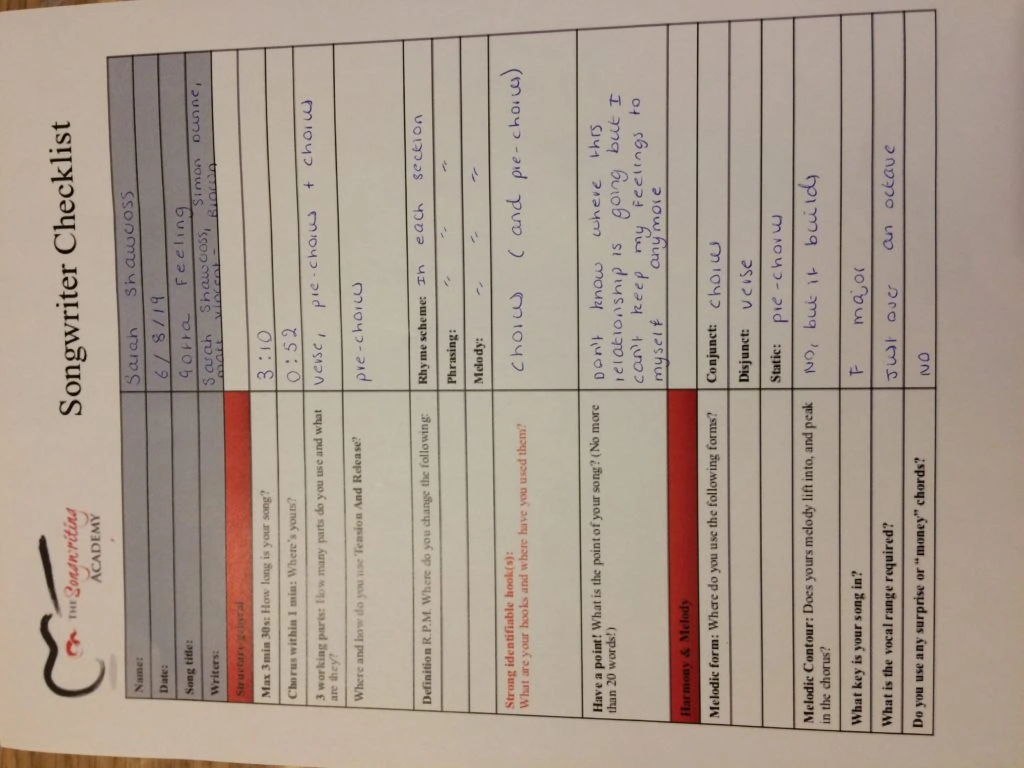 THE Songwriting
ACADEMY
Songwriter Checklist
Name: Sarah Shawcross
Date: 6/8/19
Song title: Gotta Feeling
Writers: Sarah Shawcross, Simon Dunne,
Matt Vincent-
Structure general
Max 3min 30s: How long is your song? 3:10
Chorus within 1 min: Where's yours? 0:52
3 working parts: How many parts do you use and what
are they?
verse, pre-chorus + chorus
Where and how do you use Tension And Release? pre-chorus
Definition R.P.M. Where do you change the following: Rhyme scheme: In each section
Phrasing: " " "
Melody: " " "
Strong identifiable hook(s):
What are your hooks and where have you used them?
chorus (and pre-chorus)
Have a point! What is the point of your song? (No more
than 20 words!)
Don't know where this
relationship is going but I
can't keep my feelings to
myself anymore
Harmony & Melody
Melodic form: Where do you use the following forms? Conjunct: chorus
Disjunct: verse
Static: pre-chorus
Melodic Contour: Does yours melody lift into, and peak
in the chorus?
No, but it builds
What key is your song in? F major
What is the vocal range required? Just over an octave
Do you use any surprise or "money" chords? NO